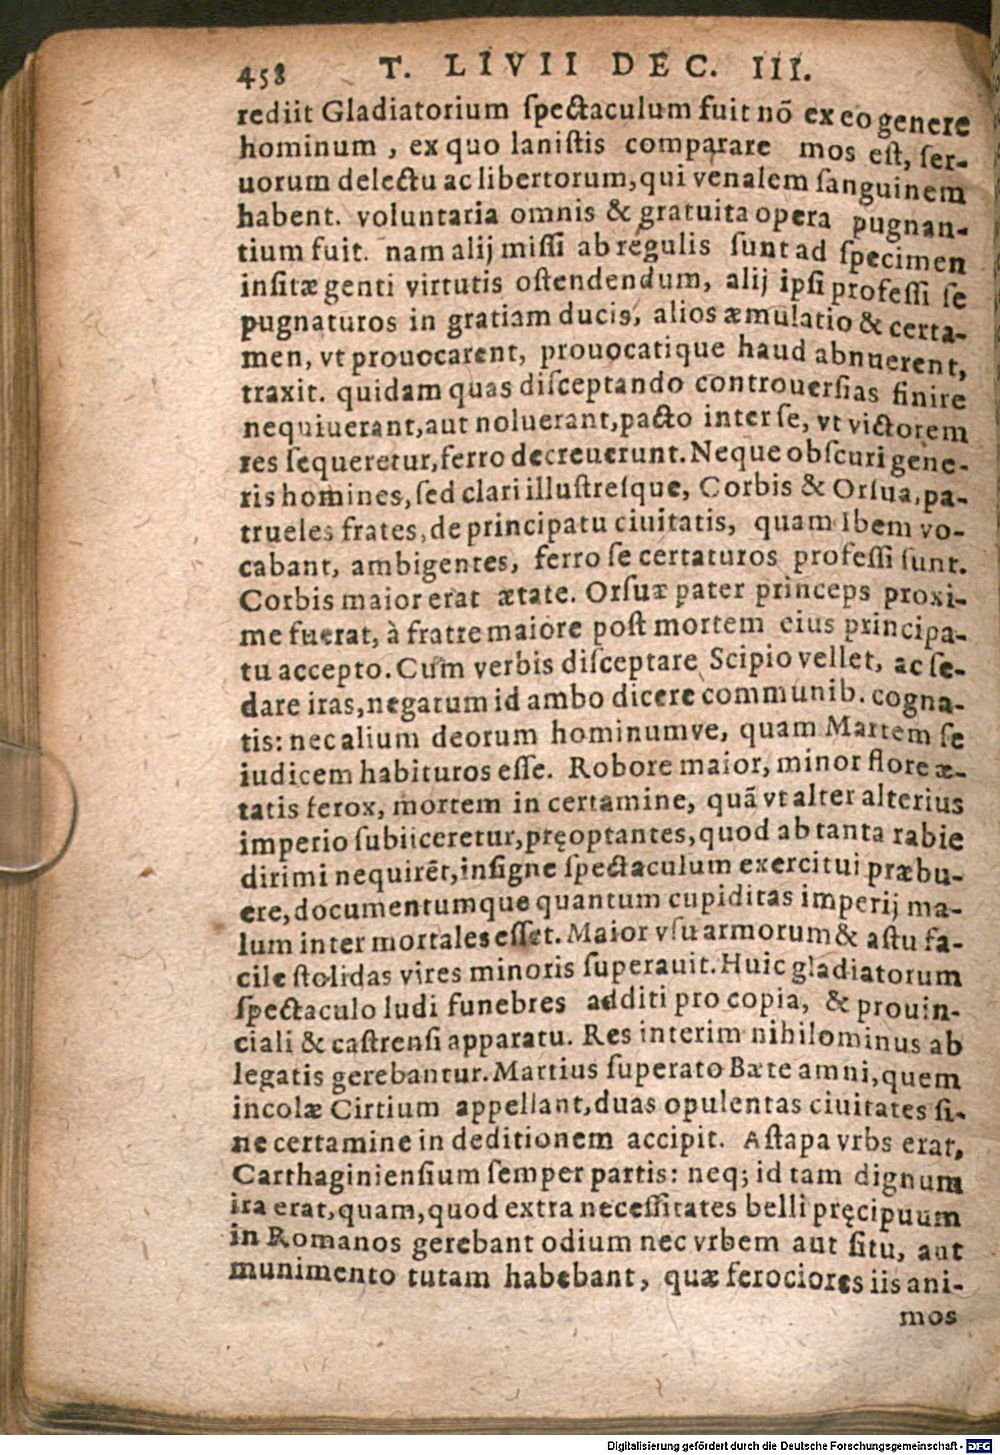 458 T. LIVII DEC. III.
rediit Gladiatorium ſpectaculum fuit nõ ex eo genere
hominum , ex quo laniſtis comparare mos eſt, ſer-
uorum delectu ac libertorum, qui venalem ſanguinem
habent. voluntaria omnis & gratuita opera pugnan-
tium fuit. nam alij miſſi ab regulis ſunt ad ſpecimen
inſitæ genti virtutis oſtendendum, alij ipſi profeſſi ſe
pugnaturos in gratiam ducis, alios æmulatio & certa-
men, vt prouocarent, prouocatique haud abnuerent,
traxit. quidam quas diſceptando controuerſias finire
nequiuerant, aut noluerant, pacto inter ſe, vt victorem
res ſequeretur, ferro decreuerunt. Neque obſcuri gene-
ris homines, ſed clari illuſtreſque, Corbis & Orſua, pa-
trueles frates, de principatu ciuitatis, quam Ibem vo-
cabant, ambigentes, ferro ſe certaturos profeſſi ſunt.
Corbis maior erat ætate. Orſuæ pater princeps proxi-
me fuerat, à fratre maiore poſt mortem eius principa-
tu accepto. Cum verbis diſceptare Scipio vellet, ac ſe-
dare iras, negatum id ambo dicere communib. cogna-
tis: nec alium deorum hominumve, quam Martem ſe
iudicem habituros eſſe. Robore maior, minor flore æ-
tatis ferox, mortem in certamine, quã vt alter alterius
imperio ſubiiceretur, pręoptantes, quod ab tanta rabie
dirimi nequirẽt, inſigne ſpectaculum exercitui præbu-
ere, documentumque quantum cupiditas imperij ma-
lum inter mortales eſſet. Maior vſu armorum & aſtu fa-
cile ſtolidas vires minoris ſuperauit. Huic gladiatorum
ſpectaculo ludi funebres additi pro copia, & prouin-
ciali & caſtrenſi apparatu. Res interim nihilominus ab
legatis gerebantur. Martius ſuperato Bæte amni, quem
incolæ Cirtium appellant, duas opulentas ciuitates ſi-
ne certamine in deditionem accipit. Aſtapa vrbs erat,
Carthaginienſium ſemper partis: neq; id tam dignum
ira erat, quam, quod extra neceſſitates belli pręcipuum
in Romanos gerebant odium nec vrbem aut ſitu, aut
munimento tutam habebant, quæ ferociores iis ani-
mos
Digitalisierung gefördert durch die Deutsche Forschungsgemeinschaft - DFG